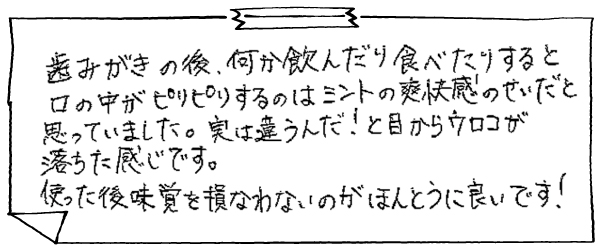 歯みがきの後、何か飲んだり食べたりすると
口の中がピリピリするのはミントの爽快感のせいだと
思っていました。実は違うんだ！と目からウロコが
落ちた感じです。
使った後味覚を損なわないのがほんとうに良いです！